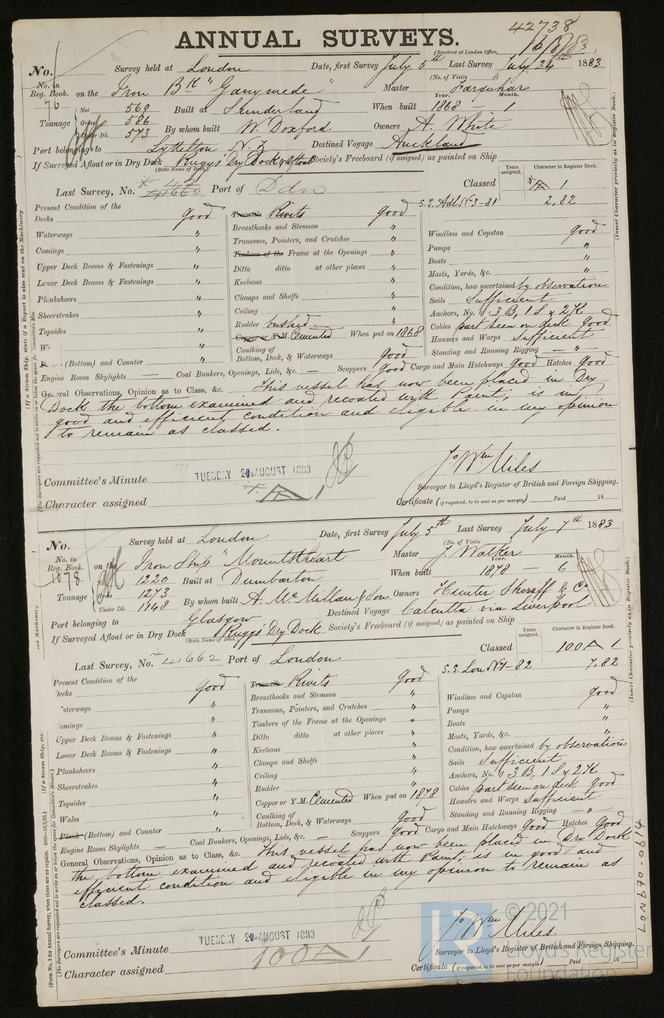 42738
ANNUAL SURVEYS.
(Received at London Office,
No. Survey held at London Date, first Survey July 5th Last Survey July 24th 1883
No. in Reg. Book. on the Iron Bk "Ganymede" Master Farquhar
(No. of Visits
76
Year. Month.
Net 569 Built at Sunderland When built 1868
Tonnage Gross 586
Under Dk. 543 By whom built W. Doxford Owners A. White
Port belonging to Lyttelton N.Z. Destined Voyage Auckland
If Surveyed Afloat or in Dry Dock Ruggs' Dry Dock & Afloat Society's Freeboard (if assigned) as painted on Ship
(State Name of Dock.)
Last Survey, No. Port of
Classed
Years assigned.
Character in Register Book.
A 1
S.S. 2,82
Present Condition of the
Decks good
Waterways "
Comings "
Upper Deck Beams & Fastenings "
Lower Deck Beams & Fastenings "
Plansheers "
Sheerstrakes "
Topsides "
(Bottom) and Counter "
Engine Room Skylights —
Treenails Rivets good
Breasthooks and Stemson "
Transoms, Pointers, and Crutches "
Timbers of the Frame at the Openings "
Ditto ditto at other places "
Keelsons "
Clamps and Shelfs "
Ceiling "
Rudder bushed "
Copper or Y.M. Cemented When put on 1868
Caulking of Bottom, Deck, & Waterways good
Coal Bunkers, Openings, Lids, &c. — Scuppers good Cargo and Main Hatchways Good Hatches Good
Windlass and Capstan good
Pumps "
Boats "
Masts, Yards, &c. "
Condition, how ascertained by observation
Sails Sufficient
Anchors, No. 3 B, 1 S & 2 K
Cables part seen on deck Good
Hawsers and Warps Sufficient
Standing and Running Rigging
General Observations, Opinion as to Class, &c. This vessel has now been placed in Dry
Dock the bottom examined and recoated with Paint, is in
good and efficient condition and eligible in my opinion
to remain as classed.
Committee's Minute TUESDAY 28 AUGUST 1883
Character assigned A
Jno Wm Miles
Surveyor to Lloyd's Register of British and Foreign Shipping.
Certificate (if required, to be sent as per margin) Paid 18
No. Survey held at London Date, first Survey July 5th Last Survey July 7th 1883
No. in Reg. Book. on the Iron Ship "Mountstuart Master J. Walker
(No. of Visits
1078
Year. Month.
Net 1220 Built at Dumbarton When built 1878 — 6
Tonnage 1273
Under Dk. 1148 By whom built A. McMillan & Son Owners Hunter Sheriff & Co
Port belonging to Glasgow Destined Voyage Calcutta via Liverpool
If Surveyed Afloat or in Dry Dock Ruggs' Dry Dock Society's Freeboard (if assigned) as painted on Ship
(State Name of Dock.)
Last Survey, No. 41662 Port of London
Classed
Years assigned.
Character in Register Book.
100 A 1
S.S. Lon No 1-82 7,82
Present Condition of the
Decks Good
Waterways "
Comings "
Upper Deck Beams & Fastenings "
Lower Deck Beams & Fastenings "
Plansheers "
Sheerstrakes "
Topsides "
Wales "
Plank (Bottom) and Counter "
Engine Room Skylights —
Treenails Rivets Good
Breasthooks and Stemson "
Transoms, Pointers, and Crutches "
Timbers of the Frame at the Openings "
Ditto ditto at other places "
Keelsons "
Clamps and Shelfs "
Ceiling "
Rudder "
Copper or Y.M. Cemented When put on 1878
Caulking of Bottom, Deck, & Waterways Good
Coal Bunkers, Openings, Lids, &c. — Scuppers Good Cargo and Main Hatchways Good Hatches Good
Windlass and Capstan good
Pumps "
Boats "
Masts, Yards, &c. "
Condition, how ascertained by observation
Sails Sufficient
Anchors, No. 3 B, 1 S & 2 K
Cables part seen on deck Good
Hawsers and Warps Sufficient
Standing and Running Rigging "
General Observations, Opinion as to Class, &c. This vessel has now been placed in Dry Dock
the bottom examined and recoated with Paint, is in good and
efficient condition and eligible in my opinion to remain as
classed.
Committee's Minute TUESDAY 28 AUGUST 1883
Character assigned 100 A 1
Jno Wm Miles
Surveyor to Lloyd's Register of British and Foreign Shipping.
Certificate (if required, to be sent as per margin) Paid 18
LON970-0614
© 2021
Lloyd's Register
Foundation